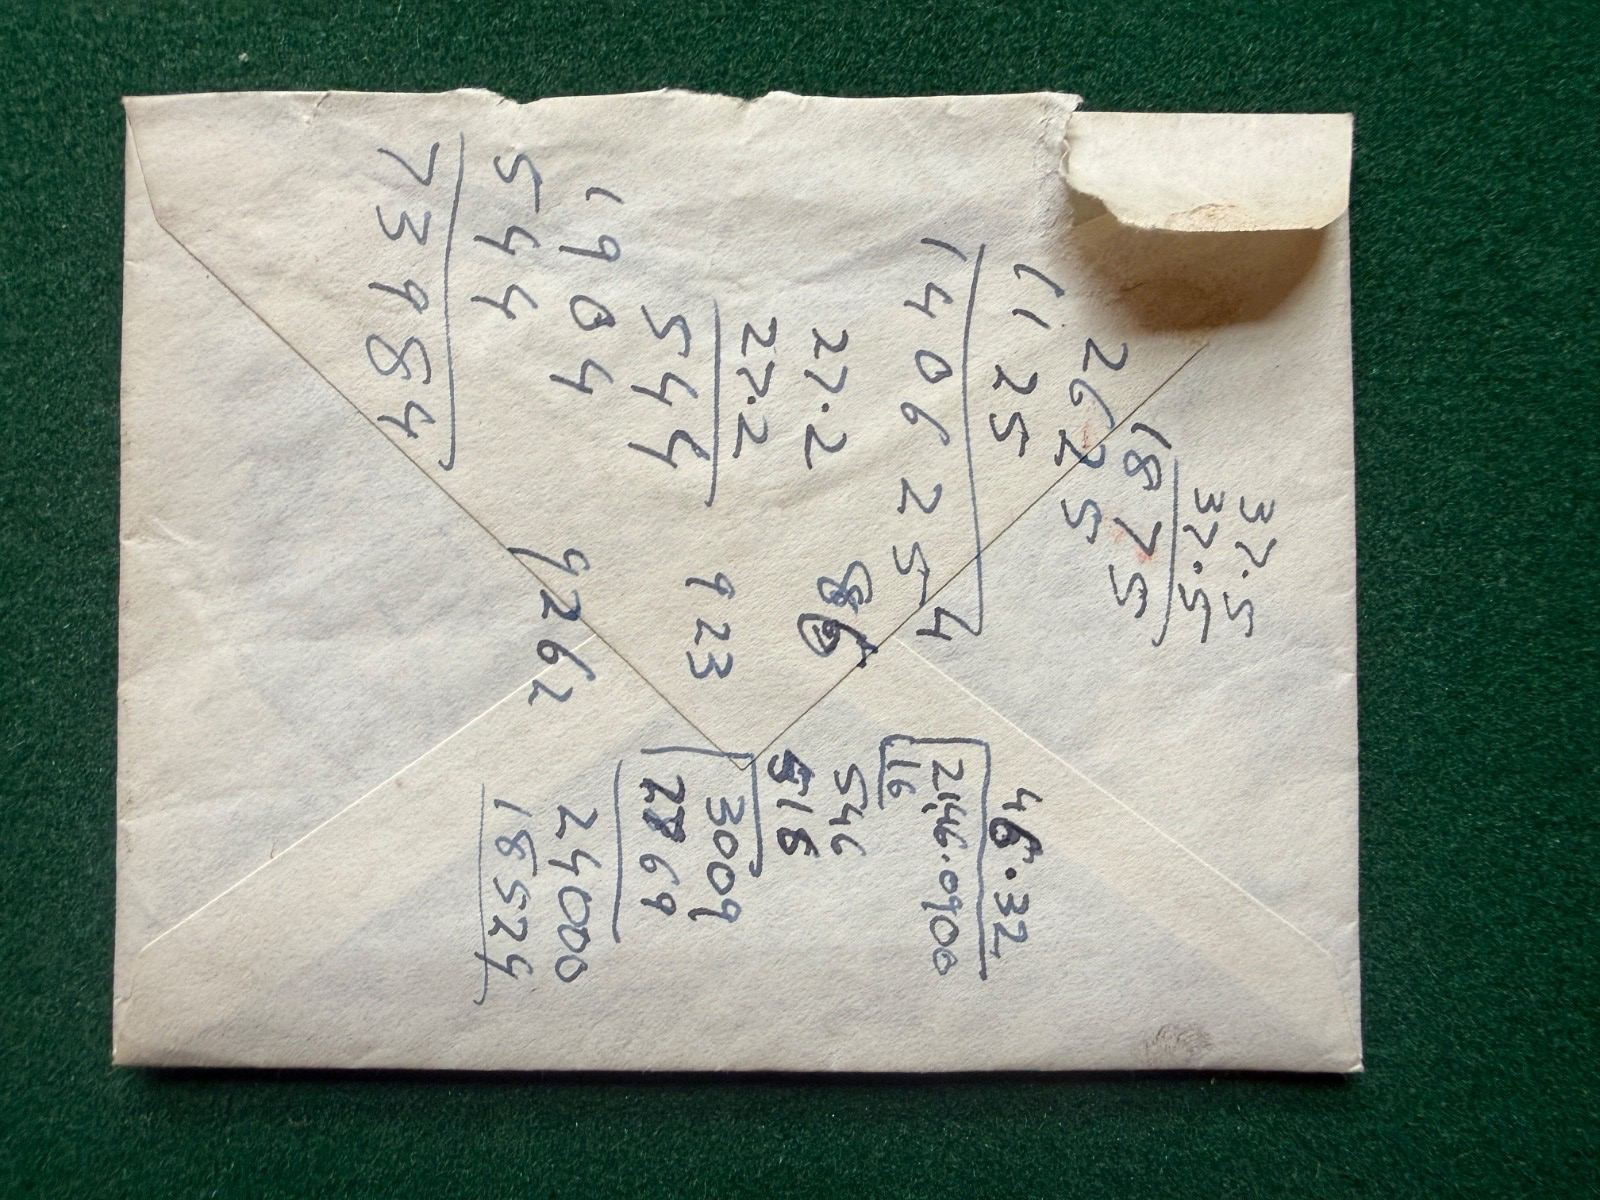 37.5
37.5
1875
2625
1125
140625 4
27.2
27.2
544
1904
544
73984
46.32
2146.0900
16
86 546
516
923 3009
2769
9262 24000
18524